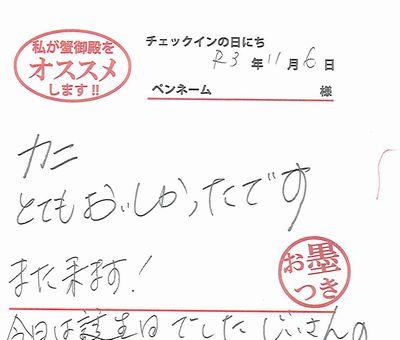 私が蟹御殿を
オススメ
します!!
チェックインの日にち
R3年11月6日
ペンネーム 様
カニ
とてもおいしかったです
また来ます!
お墨
つき
今日は誕生日でした じいさんの